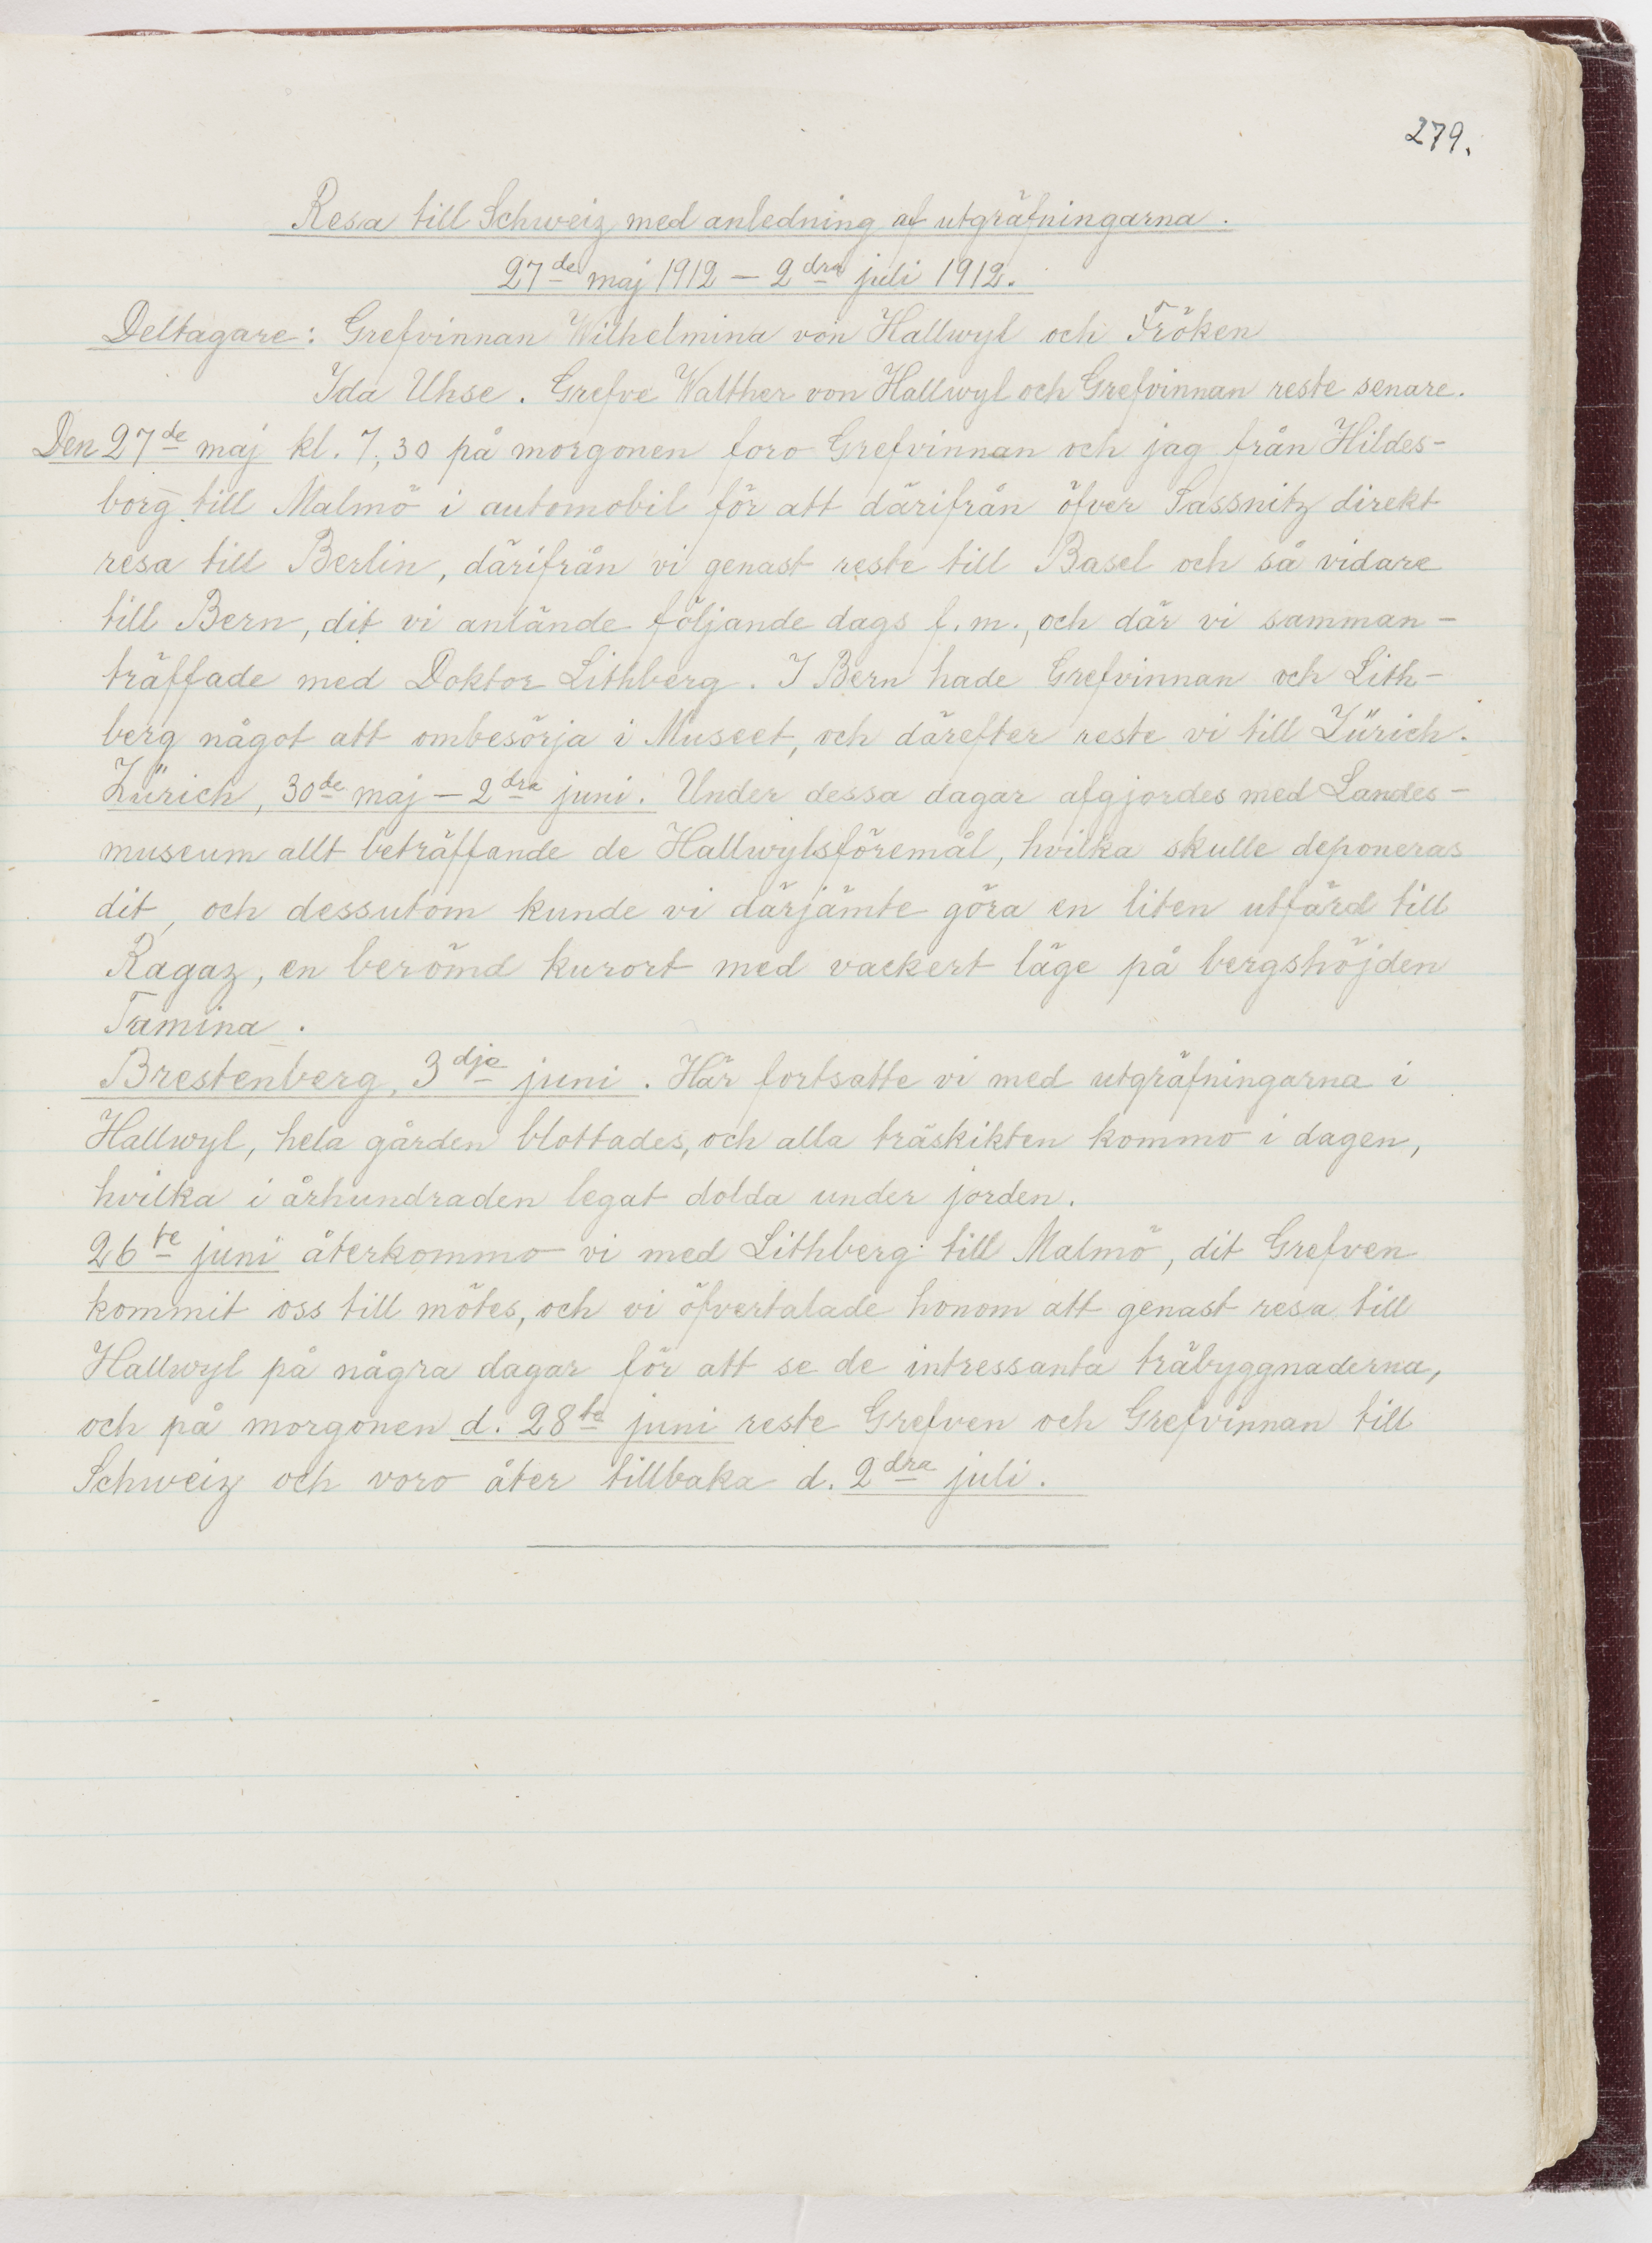 279.
Resa till Schweiz med anledning af utgräfningarna.
27de maj 1912 – 2dra juli 1912.
Deltagare: Grefvinnan Wilhelmina von Hallwyl och Fröken
Ida Uhse. Grefve Walther von Hallwyl och Grefvinnan reste senare.
Den 27de maj kl. 7,30 på morgonen foro Grefvinnan och jag från Hildes-
borg till Malmö i automobil för att därifrån öfver Sassnitz direkt
resa till Berlin, därifrån vi genast reste till Basel och så vidare
till Bern, dit vi anlände följande dags f.m., och där vi samman-
träffade med Doktor Lithberg. I Bern hade Grefvinnan och Lith-
berg något att ombesörja i Museet, och därefter reste vi till Zürich.
Zürich, 30de maj – 2dra juni. Under dessa dagar afgjordes med Landes-
museum allt beträffande de Hallwylsföremål, hvilka skulle deponeras
dit, och dessutom kunde vi därjämte göra en liten utfärd till
Ragaz, en berömd kurort med vackert läge på bergshöjden
Tamina.
Brestenberg, 3dje juni. Här fortsatte vi med utgräfningarna i
Hallwyl, hela gården blottades, och alla träskikten kommo i dagen,
hvilka i århundraden legat dolda under jorden.
26te juni återkommo vi med Lithberg till Malmö, dit Grefven
kommit oss till mötes, och vi öfvertalade honom att genast resa till
Hallwyl på några dagar för att se de intressanta träbyggnaderna,
och på morgonen d. 28te juni reste Grefven och Grefvinnan till
Schweiz och voro åter tillbaka d. 2dra juli.